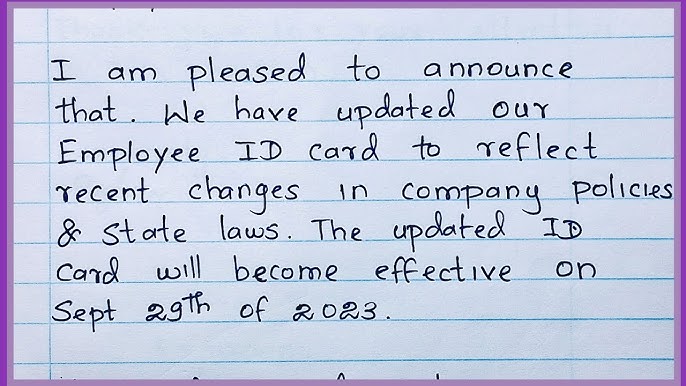 I am pleased to announce
that. We have updated our
Employee ID card to reflect
recent changes in company policies
& state laws. The updated ID
card will become effective on
Sept 29th of 2023.